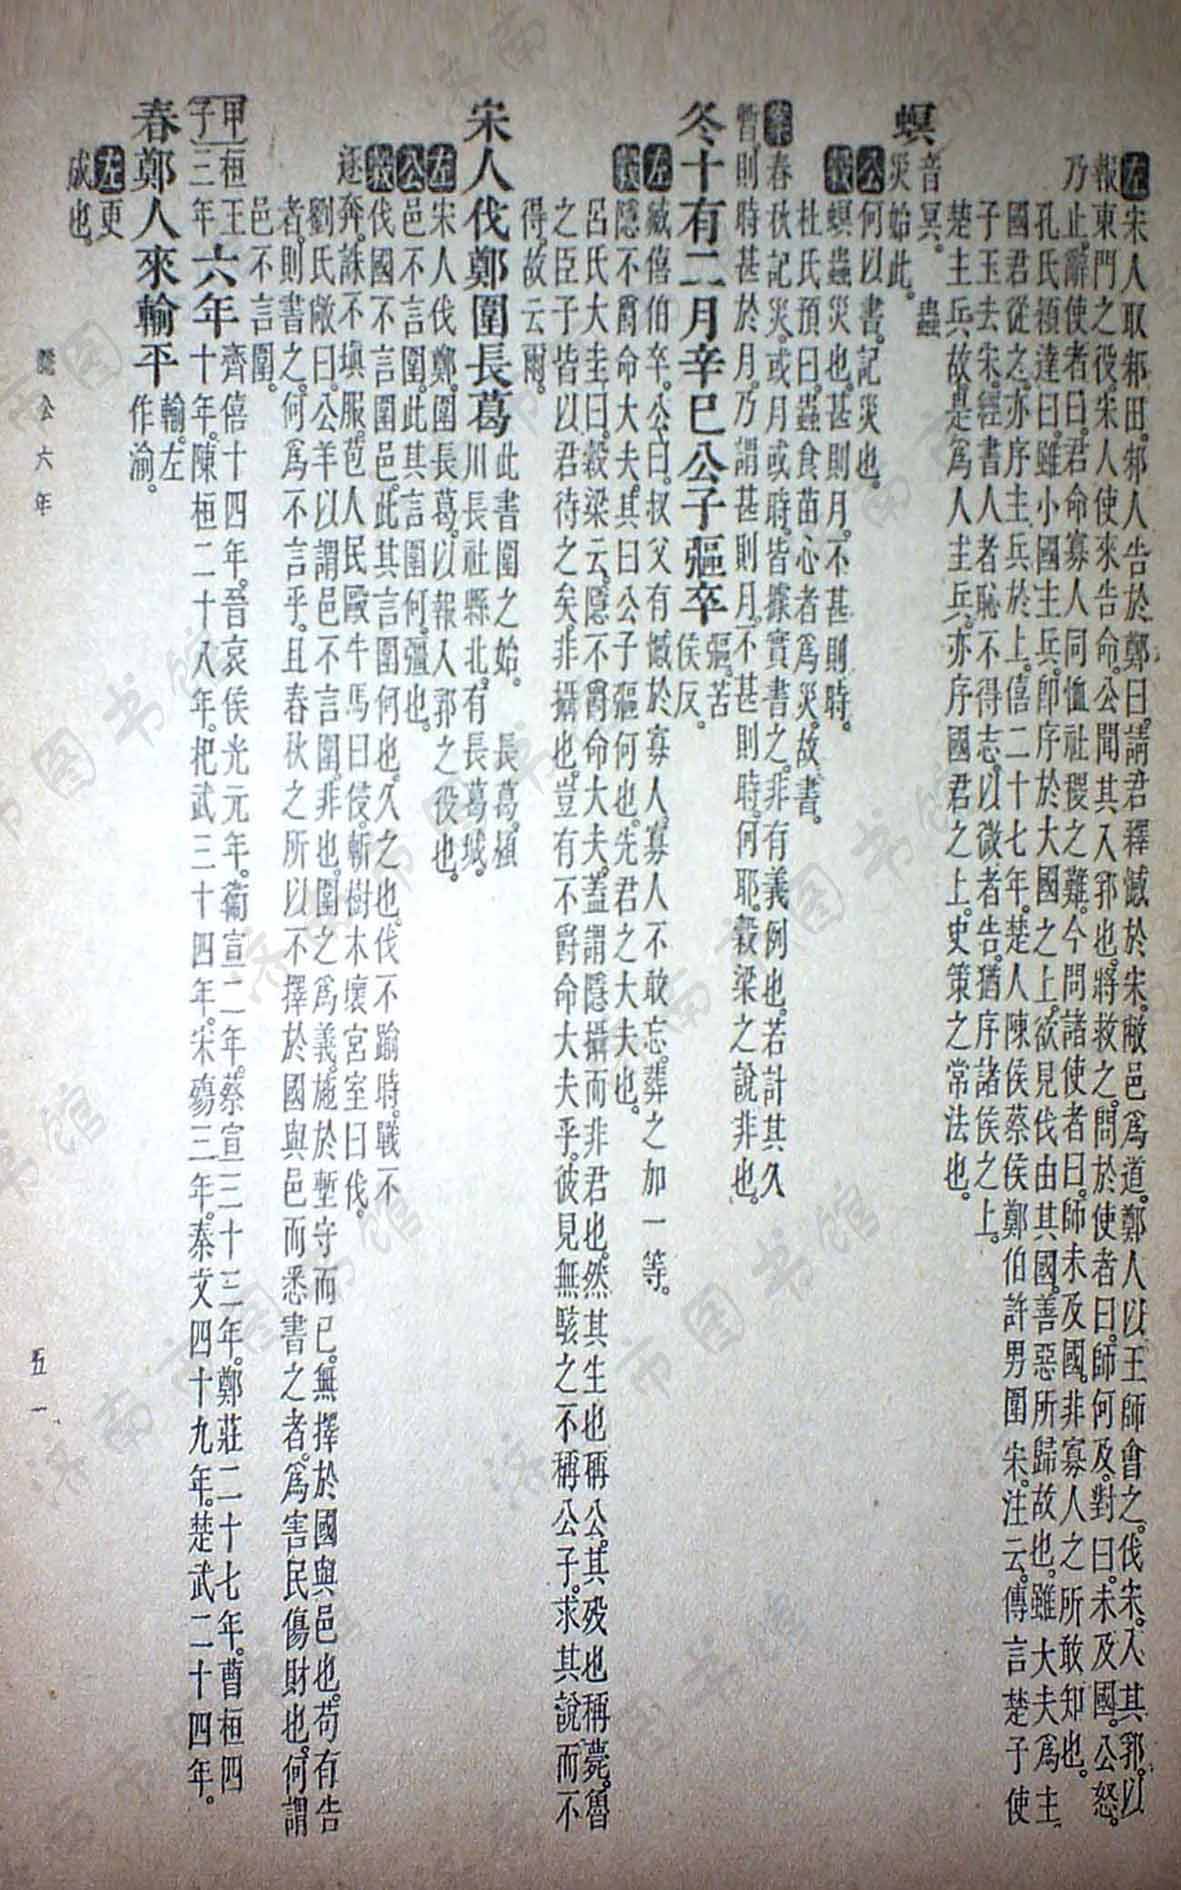 左宋人取邾田。邾人告於鄭曰。請君釋憾於宋。敝邑爲道。鄭人以王師會之。伐宋。入其郛。以
報東門之役。宋人使來告命。公聞其入郛也。將救之。問於使者曰。師何及。對曰。未及國。公怒。
乃止。辭使者曰。君命寡人同恤社稷之難。今問諸使者曰。師未及國。非寡人之所敢知也。
孔氏穎達曰。雖小國主兵。卽序於大國之上。欲見伐由其國。善惡所歸故也。雖大夫爲主。
國君從之。亦序主兵於上。僖二十七年。楚人陳侯蔡侯鄭伯許男圍宋。注云。傳言楚子使
子玉去宋。經書人者。恥不得志。以微者告。猶序諸侯之上。
楚主兵故。是爲人主兵。亦序國君之上。史策之常法也。
螟 音冥。蟲
災始此。
公何以書。記災也。
穀螟蟲災也。甚則月。不甚則時。
杜氏預曰。蟲食苗心者爲災。故書。
案春秋記災。或月或時。皆據實書之。非有義例也。若計其久
暫。則時甚於月。乃謂甚則月。不甚則時。何耶。穀梁之說非也。
冬十有二月辛巳公子彄卒 彄。苦
侯反。
左臧僖伯卒。公曰。叔父有憾於寡人。寡人不敢忘。葬之加一等。
穀隱不爵命大夫。其曰公子彄何也。先君之大夫也。
呂氏大圭曰。穀梁云。隱不爵命大夫。蓋謂隱攝而非君也。然其生也稱公。其殁也稱薨。魯
之臣子皆以君待之矣。非攝也。豈有不爵命大夫乎。彼見無駭之不稱公子。求其說而不
得。故云爾。
宋人伐鄭圍長葛 此書圍之始。長葛。潁
川長社縣北。有長葛城。
左宋人伐鄭。圍長葛。以報入郛之役也。
公邑不言圍。此其言圍何。彊也。
穀伐國不言圍邑。此其言圍何也。久之也。伐不踰時。戰不
逐奔。誅不塡服。苞人民毆牛馬曰侵。斬樹木壞宮室曰伐。
劉氏敞曰。公羊以謂邑不言圍。非也。圍之爲義。施於塹守而已。無擇於國與邑也。苟有告
者。則書之。何爲不言乎。且春秋之所以不擇於國與邑而悉書之者。爲害民傷財也。何謂
邑不言圍。
甲子 桓王三年 六年 齊僖十四年。晉哀侯光元年。衞宣二年。蔡宣三十三年。鄭莊二十七年。曹桓四
十年。陳桓二十八年。杞武三十四年。宋殤三年。秦文四十九年。楚武二十四年。
春鄭人來輸平 輸。左
作渝。
左更
成也。
隱公六年
五一